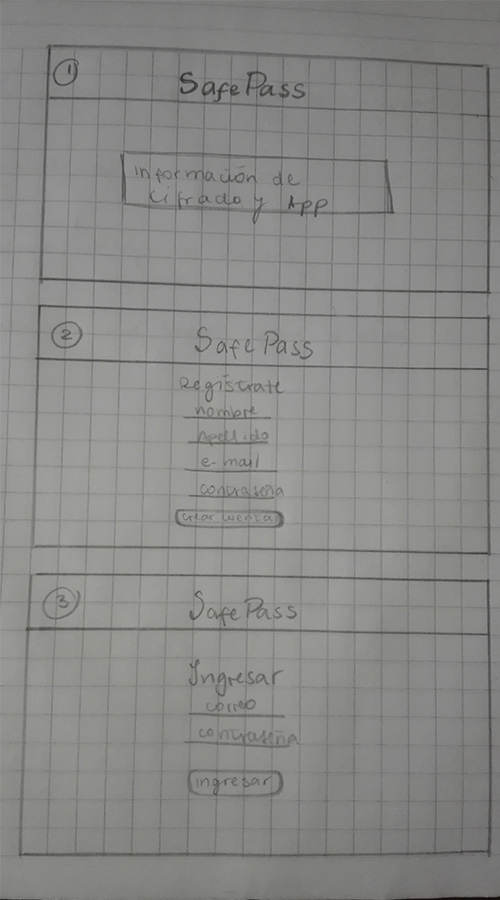 1
SafePass
Información de
Cifrado y App
2
SafePass
Regístrate
nombre
Apellido
e-mail
contraseña
crear cuenta
3
SafePass
Ingresar
correo
contraseña
ingresar